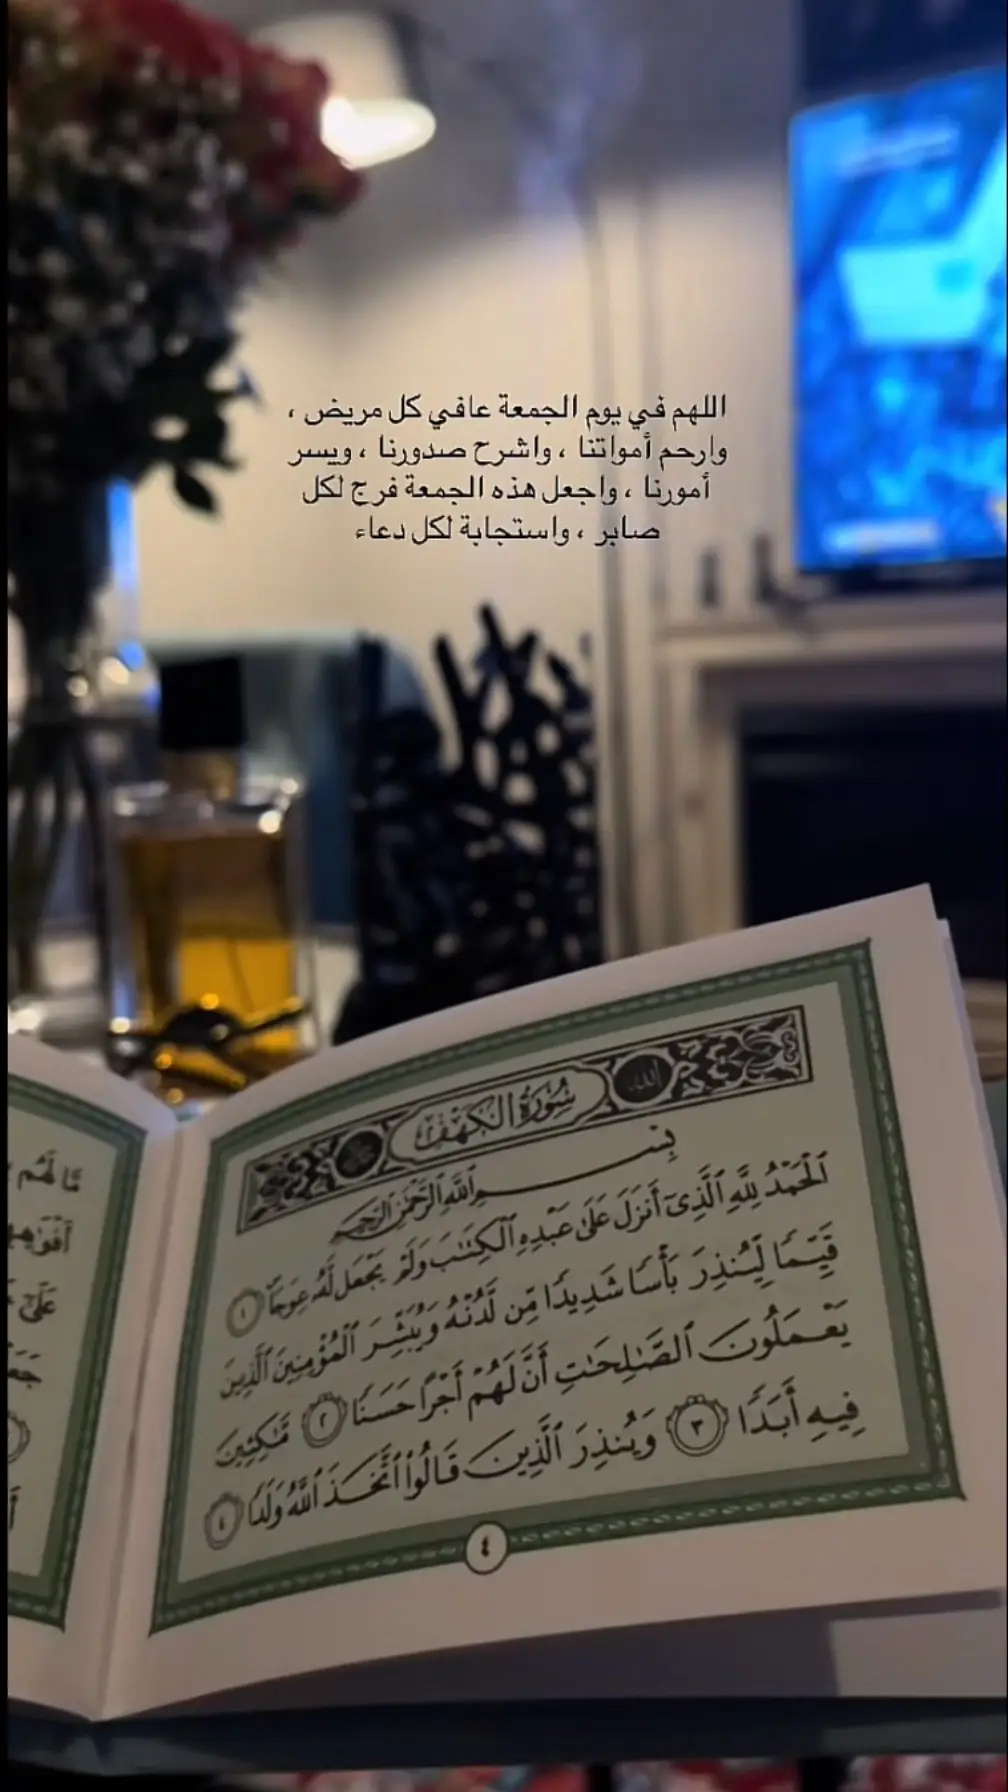 اللهم في يوم الجمعة عافي كل مريض ،
وارحم أمواتنا ، واشرح صدورنا ، ويسر
أمورنا ، واجعل هذه الجمعة فرج لكل
صابر ، واستجابة لكل دعاء
سُورَةُ الكَهْفِ
الله
بِسْمِ ٱللَّهِ ٱلرَّحْمَٰنِ ٱلرَّحِيمِ
ٱلْحَمْدُ لِلَّهِ ٱلَّذِىٓ أَنزَلَ عَلَىٰ عَبْدِهِ ٱلْكِتَٰبَ وَلَمْ يَجْعَل لَّهُۥ عِوَجَا ۜ ١
قَيِّمًا لِّيُنذِرَ بَأْسًا شَدِيدًا مِّن لَّدُنْهُ وَيُبَشِّرَ ٱلْمُؤْمِنِينَ ٱلَّذِينَ
يَعْمَلُونَ ٱلصَّٰلِحَٰتِ أَنَّ لَهُمْ أَجْرًا حَسَنًا ٢ مَّٰكِثِينَ
فِيهِ أَبَدًا ٣ وَيُنذِرَ ٱلَّذِينَ قَالُوا۟ ٱتَّخَذَ ٱللَّهُ وَلَدًا ٤
٤
مَّا لَهُم
عَلَىٰٓ